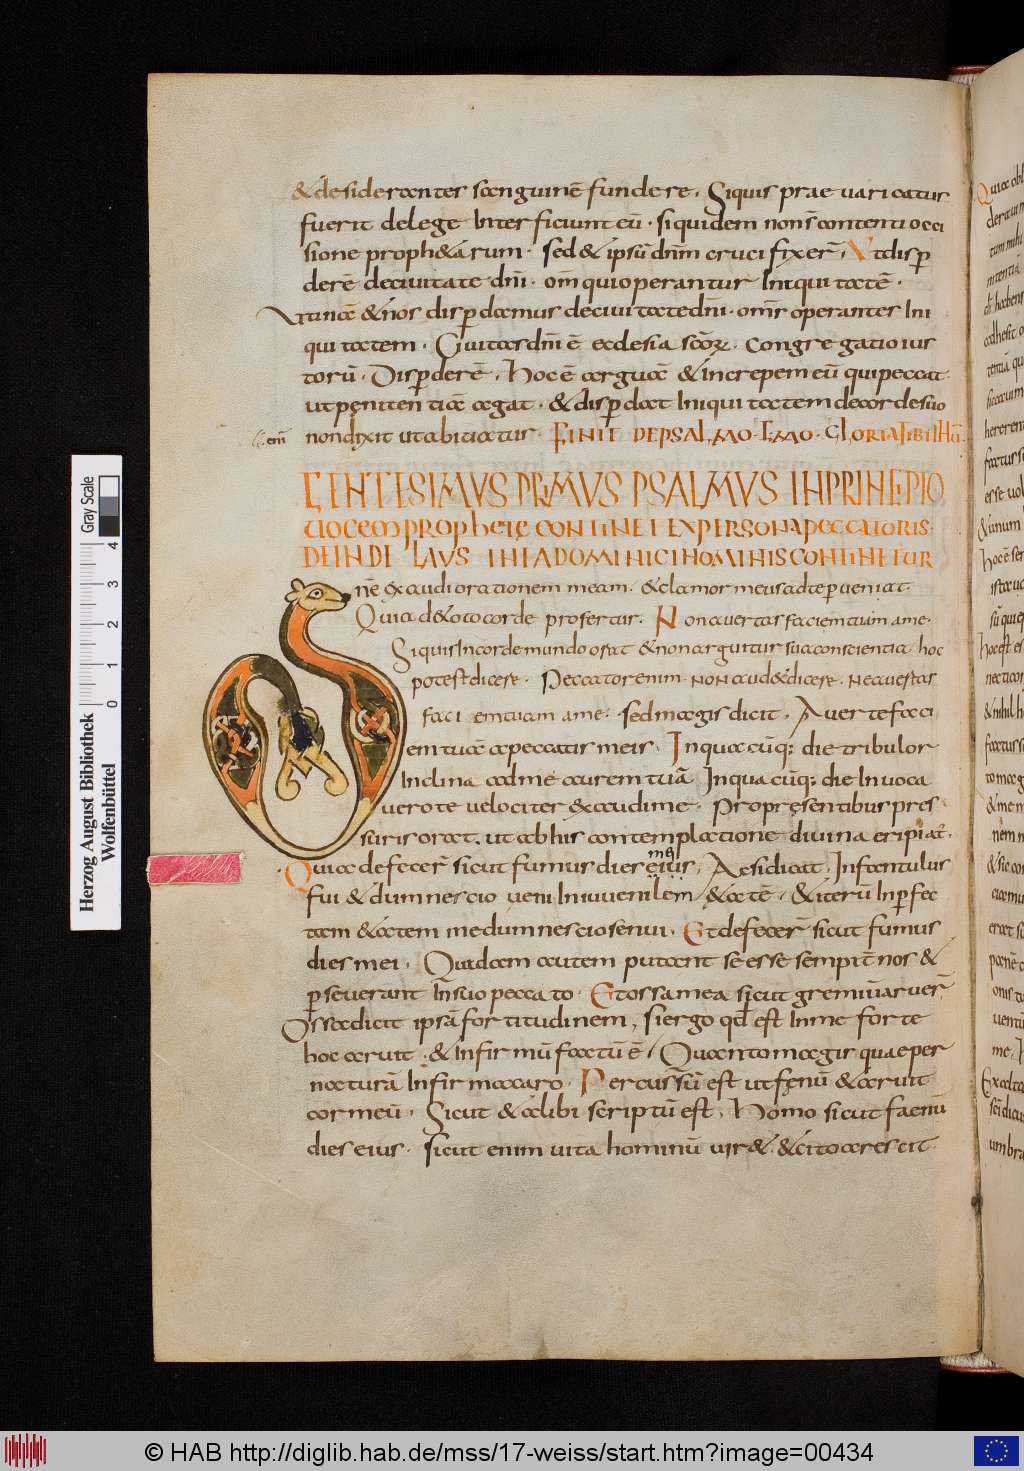 & desideranter sanguinē fundere. Siquis praeuaricatur
fuerit delege Interficiunt eū. siquidem nons̄ contenti occi
sione proph&arum. sed & ipsū dnm̄ crucifixer̄. Vt disp
derē deciuitate dnī. om̄ qui operantur Iniquitatē.
Vt inde & nos disp damus deciuitate dnī. omr̄ operanter Ini
quitatem. Ciuitas dnī ē ecclesia scōꝝ. congregatio ius
torū. Disp derē. hoc ē arguā & increpem eū qui peccat
ut penitentiā agat. & disp dat Iniquitatem de corde suo
non dixit ut abitiatur. FINIT DE PSALMO. C'MO. GLORIA TIBI IHŪ.
CENTISIMVS PRIMVS PSALMVS IN PRINCIPIO
UOCEM PROPHETE CONTINET EX PERSONA PECCATORIS.
DEINDE LAVS INIA DOMINICI HOMINIS CONTINETUR
nē exaudi orationem meam. & clamor meus ad te p ueniat.
Quia d& oto corde profertur. Non auertas faciem tuam a me.
Siquis In corde mundo orat & non arguitur sua conscientia. hoc
potest dicere. Peccator enim non aud& dicere. Ne auertas
faciem tuam a me. sed magis dicit. Auerte faci
em tuā a peccatis meis. In quacūq; die tribulor
Inclina ad me aurem tuā In qua cūq; die Inuoca
uero te uelociter exaudi me. Pro presentibus pres
suris orat. ut ab his contemplatione diuina eripiat.
Quia defecer̄ sicut fumus dies eius. Ae si dicat. Infantulus
mei
fui & dum nescio ueni In iuuenilem & atē. & iterū Inp fec
tam & atem me dum nescio senui. Et defecer̄ sicut fumus
dies mei. Quidam autem putant se esse sempit̄nos &
p seuerant In suo peccato. Et ossa mea sicut gremiū aruer̄
Ossa dicit ipsā fortitudinem, si ergo qd est In me forte
hoc aruit. & Infirmū factū ē. Quanto magis quae per
naturā Infirma caro. Percussū est ut fenū & aruit
cor meū. Sicut & alibi scriptū est. Homo sicut faenū
dies eius. sicut enim uita hominū uir&. & cito crescit.
Herzog August Bibliothek
Wolfenbüttel
Gray Scale
0 1 2 3 4
© HAB http://diglib.hab.de/mss/17-weiss/start.htm?image=00434